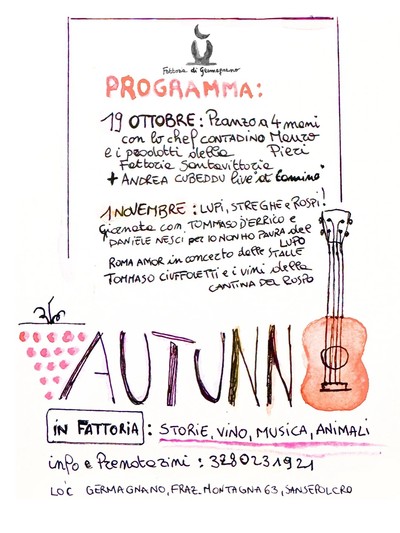 Fattoria di Germagnano
PROGRAMMA:
19 OTTOBRE: Pranzo a 4 mani
con lo chef CONTADINO Mauro
e i prodotti della Pieri
Fattoria Santavittoria
+ ANDREA CUBEDDU live "at camino"
1 NOVEMBRE: LUPI, STREGHE e ROSPI!
Giornata con TOMMASO D'ERRICO e
DANIELE NESCI per IO NON HO PAURA del
LUPO
ROMA AMOR in concerto dalle STALLE
TOMMASO CIUFFOLETTI e i vini della
CANTINA DEL RUSPO
AUTUNNO
IN FATTORIA: STORIE, VINO, MUSICA, ANIMALI
info e Prenotazini: 3280231921
LOC GERMAGNANO, FRAZ. MONTAGNA 63, SANSEPOLCRO